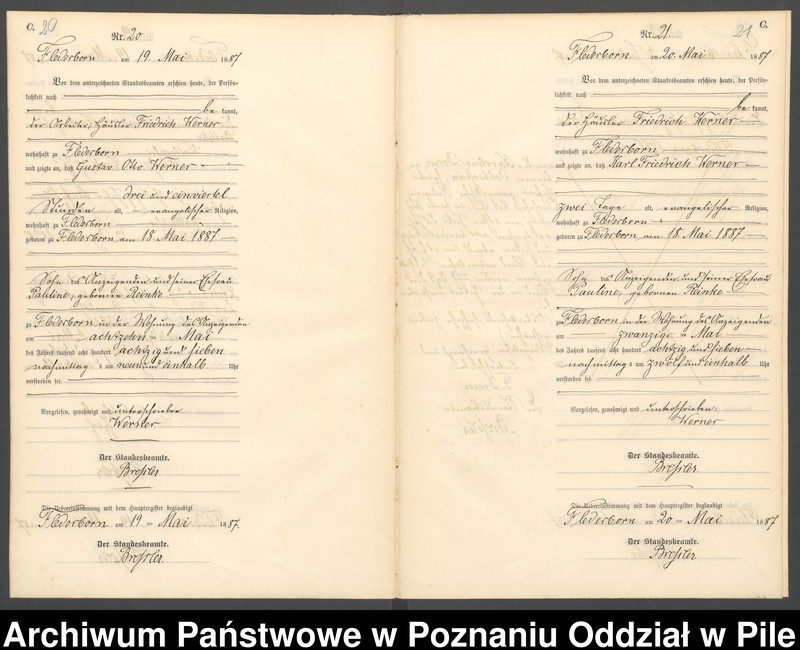 C. 20
Nr. 20
Flederborn am 19. Mai 1887
Vor dem unterzeichneten Standesbeamten erschien heute, der Persön-
lichkeit nach
be kannt,
der Arbeiter, Häusler Friedrich Werner
wohnhaft zu Flederborn
und zeigte an, daß Gustav Otto Werner
drei und einviertel
Stunden alt, evangelischer Religion,
wohnhaft zu Flederborn
geboren zu Flederborn am 18. Mai 1887
Sohn des Anzeigenden und seiner Ehefrau
Pauline, gebornen Reinke
zu Flederborn in der Wohnung des Anzeigenden
am achtzehn ten Mai
des Jahres tausend acht hundert achtzig und sieben
nachmittags um neun und einhalb Uhr
verstorben sei.
Vorgelesen, genehmigt und unterschrieben
Werner
Der Standesbeamte.
Breßler
Die Uebereinstimmung mit dem Hauptregister beglaubigt
Flederborn am 19 ten Mai 1887.
Der Standesbeamte.
Breßler
21 C.
Nr. 21
Flederborn am 20. Mai 1887
Vor dem unterzeichneten Standesbeamten erschien heute, der Persön-
lichkeit nach
be kannt,
der Häusler Friedrich Werner
wohnhaft zu Flederborn
und zeigte an, daß Karl Friedrich Werner
zwei Tage alt, evangelischer Religion,
wohnhaft zu Flederborn
geboren zu Flederborn am 18. Mai 1887
Sohn des Anzeigenden und seiner Ehefrau
Pauline, gebornen Reinke
zu Flederborn in der Wohnung des Anzeigenden
am zwanzig ten Mai
des Jahres tausend acht hundert achtzig und sieben
nachmittags um zwölf und einhalb Uhr
verstorben sei.
Vorgelesen, genehmigt und unterschrieben.
Werner
Der Standesbeamte.
Breßler.
Die Uebereinstimmung mit dem Hauptregister beglaubigt
Flederborn am 20 ten Mai 1887
Der Standesbeamte.
Breßler
Archiwum Państwowe w Poznaniu Oddział w Pile